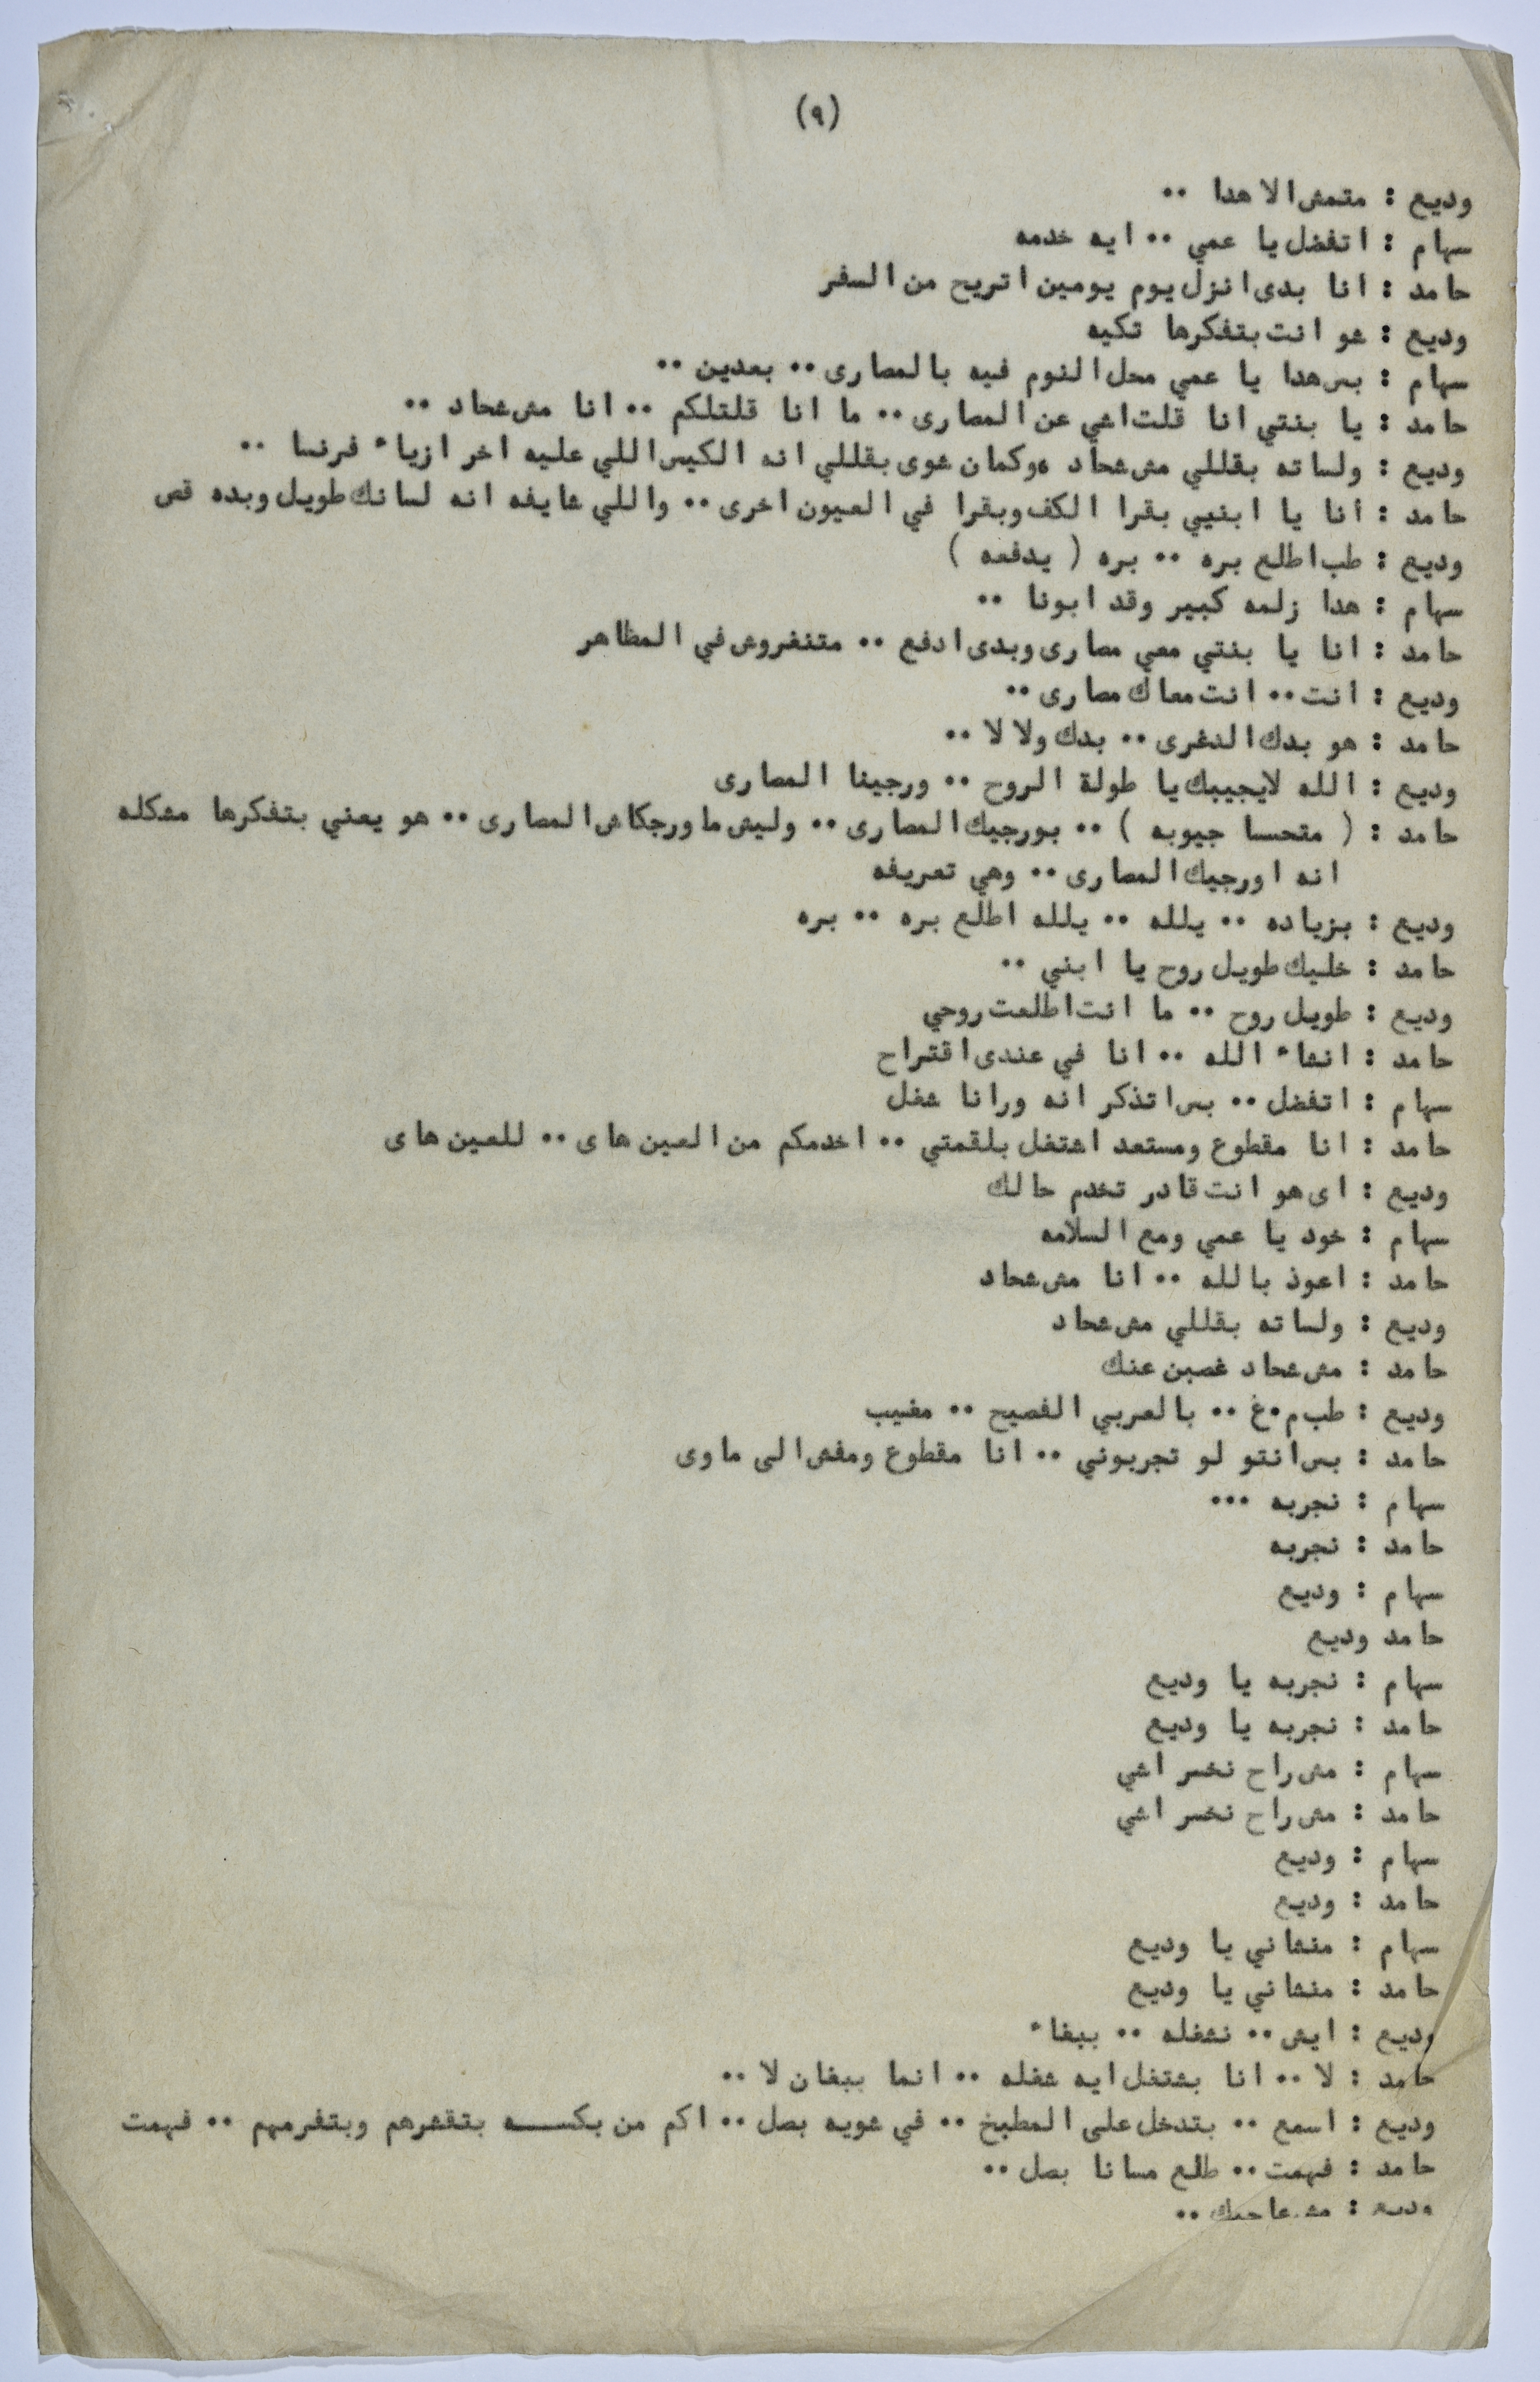 (٩)
وديع : متمش الا هدا ..
سهام : اتفضل يا عمي .. ايه خدمه
حامد : انا بدى انزل يوم يومين اتريح من السفر
وديع : شو انت بتفكرها تكيه
سهام : بس هدا يا عمي محل النوم فيه بالمصارى .. بعدين ..
حامد : يا بنتي انا قلت اشي عن المصارى .. ما انا قلتلكم .. انا مش شحاد ..
وديع : ولساته بقللي مش شحاد ٥وكمان شوى بقللي انه الكيس اللي عليه اخر ازياء فرنسا ..
حامد : انا يا ابنيي بقرا الكف وبقرا في العيون اخرى .. واللي شايفه انه لسانك طويل وبده قص
وديع : طب اطلع بره .. بره ( يدفعه )
سهام : هدا زلمه كبير وقد ابونا ..
حامد : انا يا بنتي معي مصارى وبدى ادفع .. متنغروش في المظاهر
وديع : انت .. انت معاك مصارى ..
حامد : هو بدك الدغرى .. بدك ولا لا ..
وديع : الله لايجيبك يا طولة الروح .. ورجينا المصارى
حامد : ( متحسا جيوبه ) .. بورجيك المصارى .. وليش ما ورجكاش المصارى .. هو يعني بتفكرها مشكله
انه اورجيك المصارى .. وهي تعريفه
وديع : بزياده .. يلله .. يلله اطلع بره .. بره
حامد : خليك طويل روح يا ابني ..
وديع : طويل روح .. ما انت اطلعت روحي
حامد : انشاء الله .. انا في عندى اقتراح
سهام : اتفضل .. بس اتذكر انه ورانا شغل
حامد : انا مقطوع ومستعد اشتغل بلقمتي .. اخدمكم من العين هاى .. للعين هاى
وديع : اى هو انت قادر تخدم حالك
سهام : خود يا عمي ومع السلامه
حامد : اعوذ بالله .. انا مش شحاد
وديع : ولساته بقللي مش شحاد
حامد : مش شحاد غصبن عنك
وديع : طب م.غ .. بالعربي الفصيح .. مغيب
حامد : بس انتو لو تجربوني .. انا مقطوع ومفش الى ماوى
سهام : نجربه ...
حامد : نجربه
سهام : وديع
حامد وديع
سهام : نجربه يا وديع
حامد : نجربه يا وديع
سهام : مش راح نخسر اشي
حامد : مش راح نخسر اشي
سهام : وديع
حامد : وديع
سهام : منشاني يا وديع
حامد : منشاني يا وديع
وديع : ايش .. نشغله .. ببغاء
حامد : لا .. انا بشتغل ايه شغله .. انما ببغان لا ..
وديع : اسمع .. بتدخل على المطبخ .. في شويه بصل .. اكم من بكســـه بتقشرهم وبتفرمهم .. فهمت
حامد : فهمت .. طلع مسانا بصل ..
وديع : مش عاجبك ..